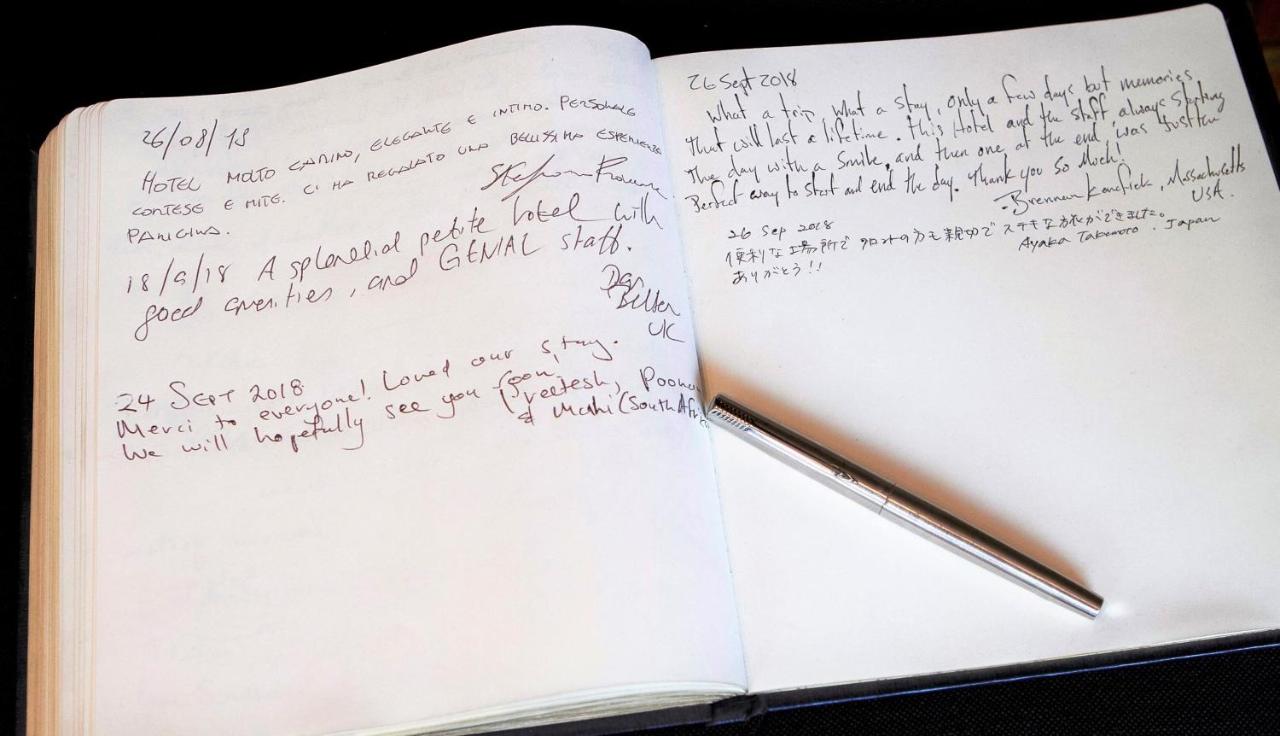 26/08/18
HOTEL MOLTO CARINO, ELEGANTE E INTIMO. PERSONALE
CORTESE E MITE. CI HA REGALATO UNA BELLISSIMA ESPERIENZA
PARIGINA.
18/9/18 A splendid petite hotel with
good amenities, and GENIAL staff.
Dan
UK
24 SEPT 2018
Merci to everyone! Loved our stay.
We will hopefully see you soon,
Preetesh, Poonam
& Mahi (South Afri
26 Sept 2018
What a trip, what a stay, only a few days but memories
that will last a lifetime. This Hotel and the staff, always starting
the day with a smile, and then one at the end, was just the
Perfect way to start and end the day. Thank you so Much!
- Brennan , Massachusetts
USA.
26 Sep 2018
便利な場所でフロントの方も親切でステキな旅ができました。
ありがとう!!
Ayaka Takemoto. Japan